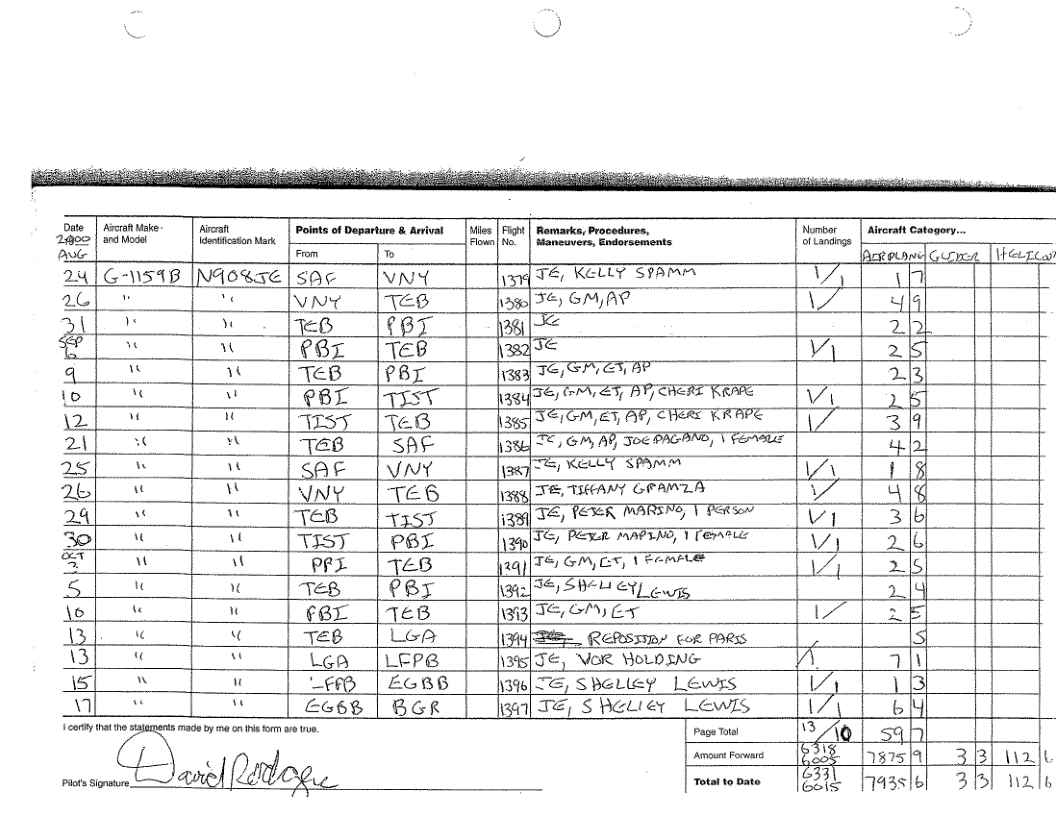 Date Aircraft Make - and Model Aircraft Identification Mark Points of Departure & Arrival Miles Flown Flight No. Remarks, Procedures, Maneuvers, Endorsements Number of Landings Aircraft Category...
2000 AUG From To AIRPLANE GLIDER HELICOPT
24 G-1159B N908JE SAF VNY 1379 JE, KELLY SPAMM 1/1 1 7
26 " " VNY TEB 1380 JE, GM, AP 1/ 4 9
31 " " TEB PBI 1381 JE 2 2
SEP 6 " " PBI TEB 1382 JE 1/1 2 5
9 " " TEB PBI 1383 JE, GM, ET, AP 2 3
10 " " PBI TIST 1384 JE, GM, ET, AP, CHERI KRAPE 1/1 2 5
12 " " TIST TEB 1385 JE, GM, ET, AP, CHERI KRAPE 1/ 3 9
21 " " TEB SAF 1386 JE, GM, AP, JOE PAGANO, 1 FEMALE 4 2
25 " " SAF VNY 1387 JE, KELLY SPAMM 1/1 1 8
26 " " VNY TEB 1388 JE, TIFFANY GRAMZA 1/ 4 8
29 " " TEB TIST 1389 JE, PETER MARINO, 1 PERSON 1/1 3 6
30 " " TIST PBI 1390 JE, PETER MARINO, 1 FEMALE 1/1 2 6
OCT " " PBI TEB 1391 JE, GM, ET, 1 FEMALE 1/1 2 5
5 " " TEB PBI 1392 JE, SHELLEY LEWIS 2 4
10 " " PBI TEB 1393 JE, GM, ET 1/ 2 5
13 " " TEB LGA 1394 REPOSITION FOR PARIS 5
13 " " LGA LFPB 1395 JE, VOR HOLDING /1 7 1
15 " " LFPB EGBB 1396 JE, SHELLEY LEWIS 1/1 1 3
17 " " EGBB BGR 1397 JE, SHELLEY LEWIS 1/1 6 4
I certify that the statements made by me on this form are true. Page Total 13/10 59 7
Amount Forward 6318 6005 7875 9 3 3 112 6
Pilot's Signature David Rodgers Total to Date 6331 6015 7935 6 3 3 112 6